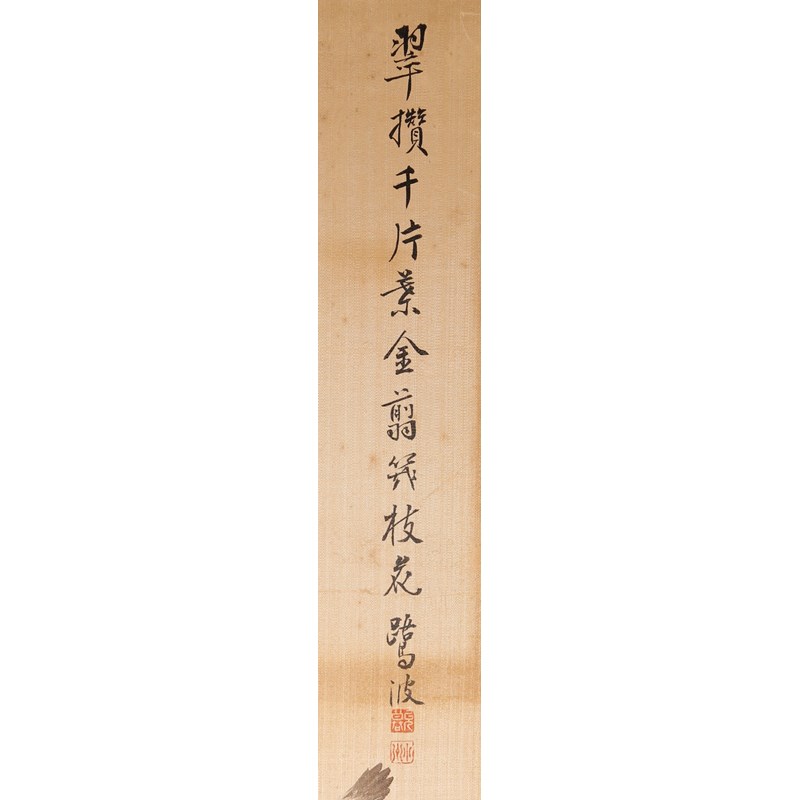 翠攢千片葉金翦幾枝花鷺波